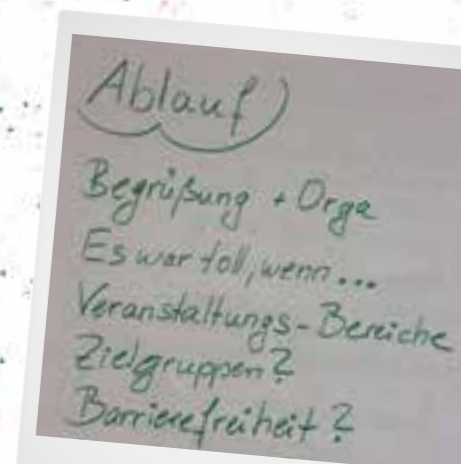 Ablauf
Begrüßung + Orga
Es war toll, wenn...
Veranstaltungs-Bereiche
Zielgruppen?
Barrierefreiheit?